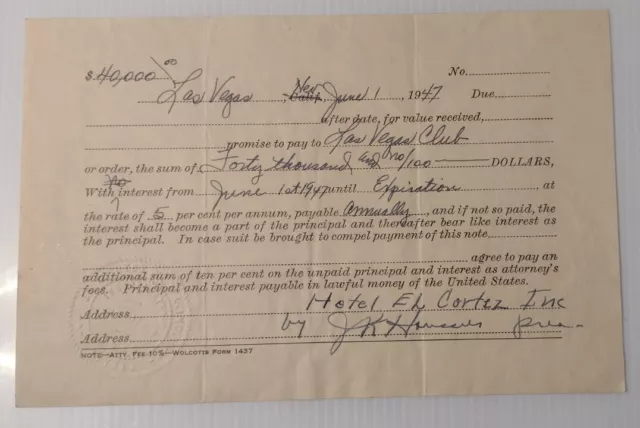 $ 40,000 00 No.
Las Vegas, Nev Calif. June 1, 1947 Due
after date, for value received,
promise to pay to Las Vegas Club
or order, the sum of Forty thousand and no/100 DOLLARS,
With no interest from June 1st 1947 until Expiration at
the rate of 5 per cent per annum, payable annually, and if not so paid, the
interest shall become a part of the principal and thereafter bear like interest as
the principal. In case suit be brought to compel payment of this note
agree to pay an
additional sum of ten per cent on the unpaid principal and interest as attorney's
fees. Principal and interest payable in lawful money of the United States.
Address Hotel El Cortez Inc
Address by J K Houssels pres.
NOTE—ATTY. FEE-10%—WOLCOTTS FORM 1437